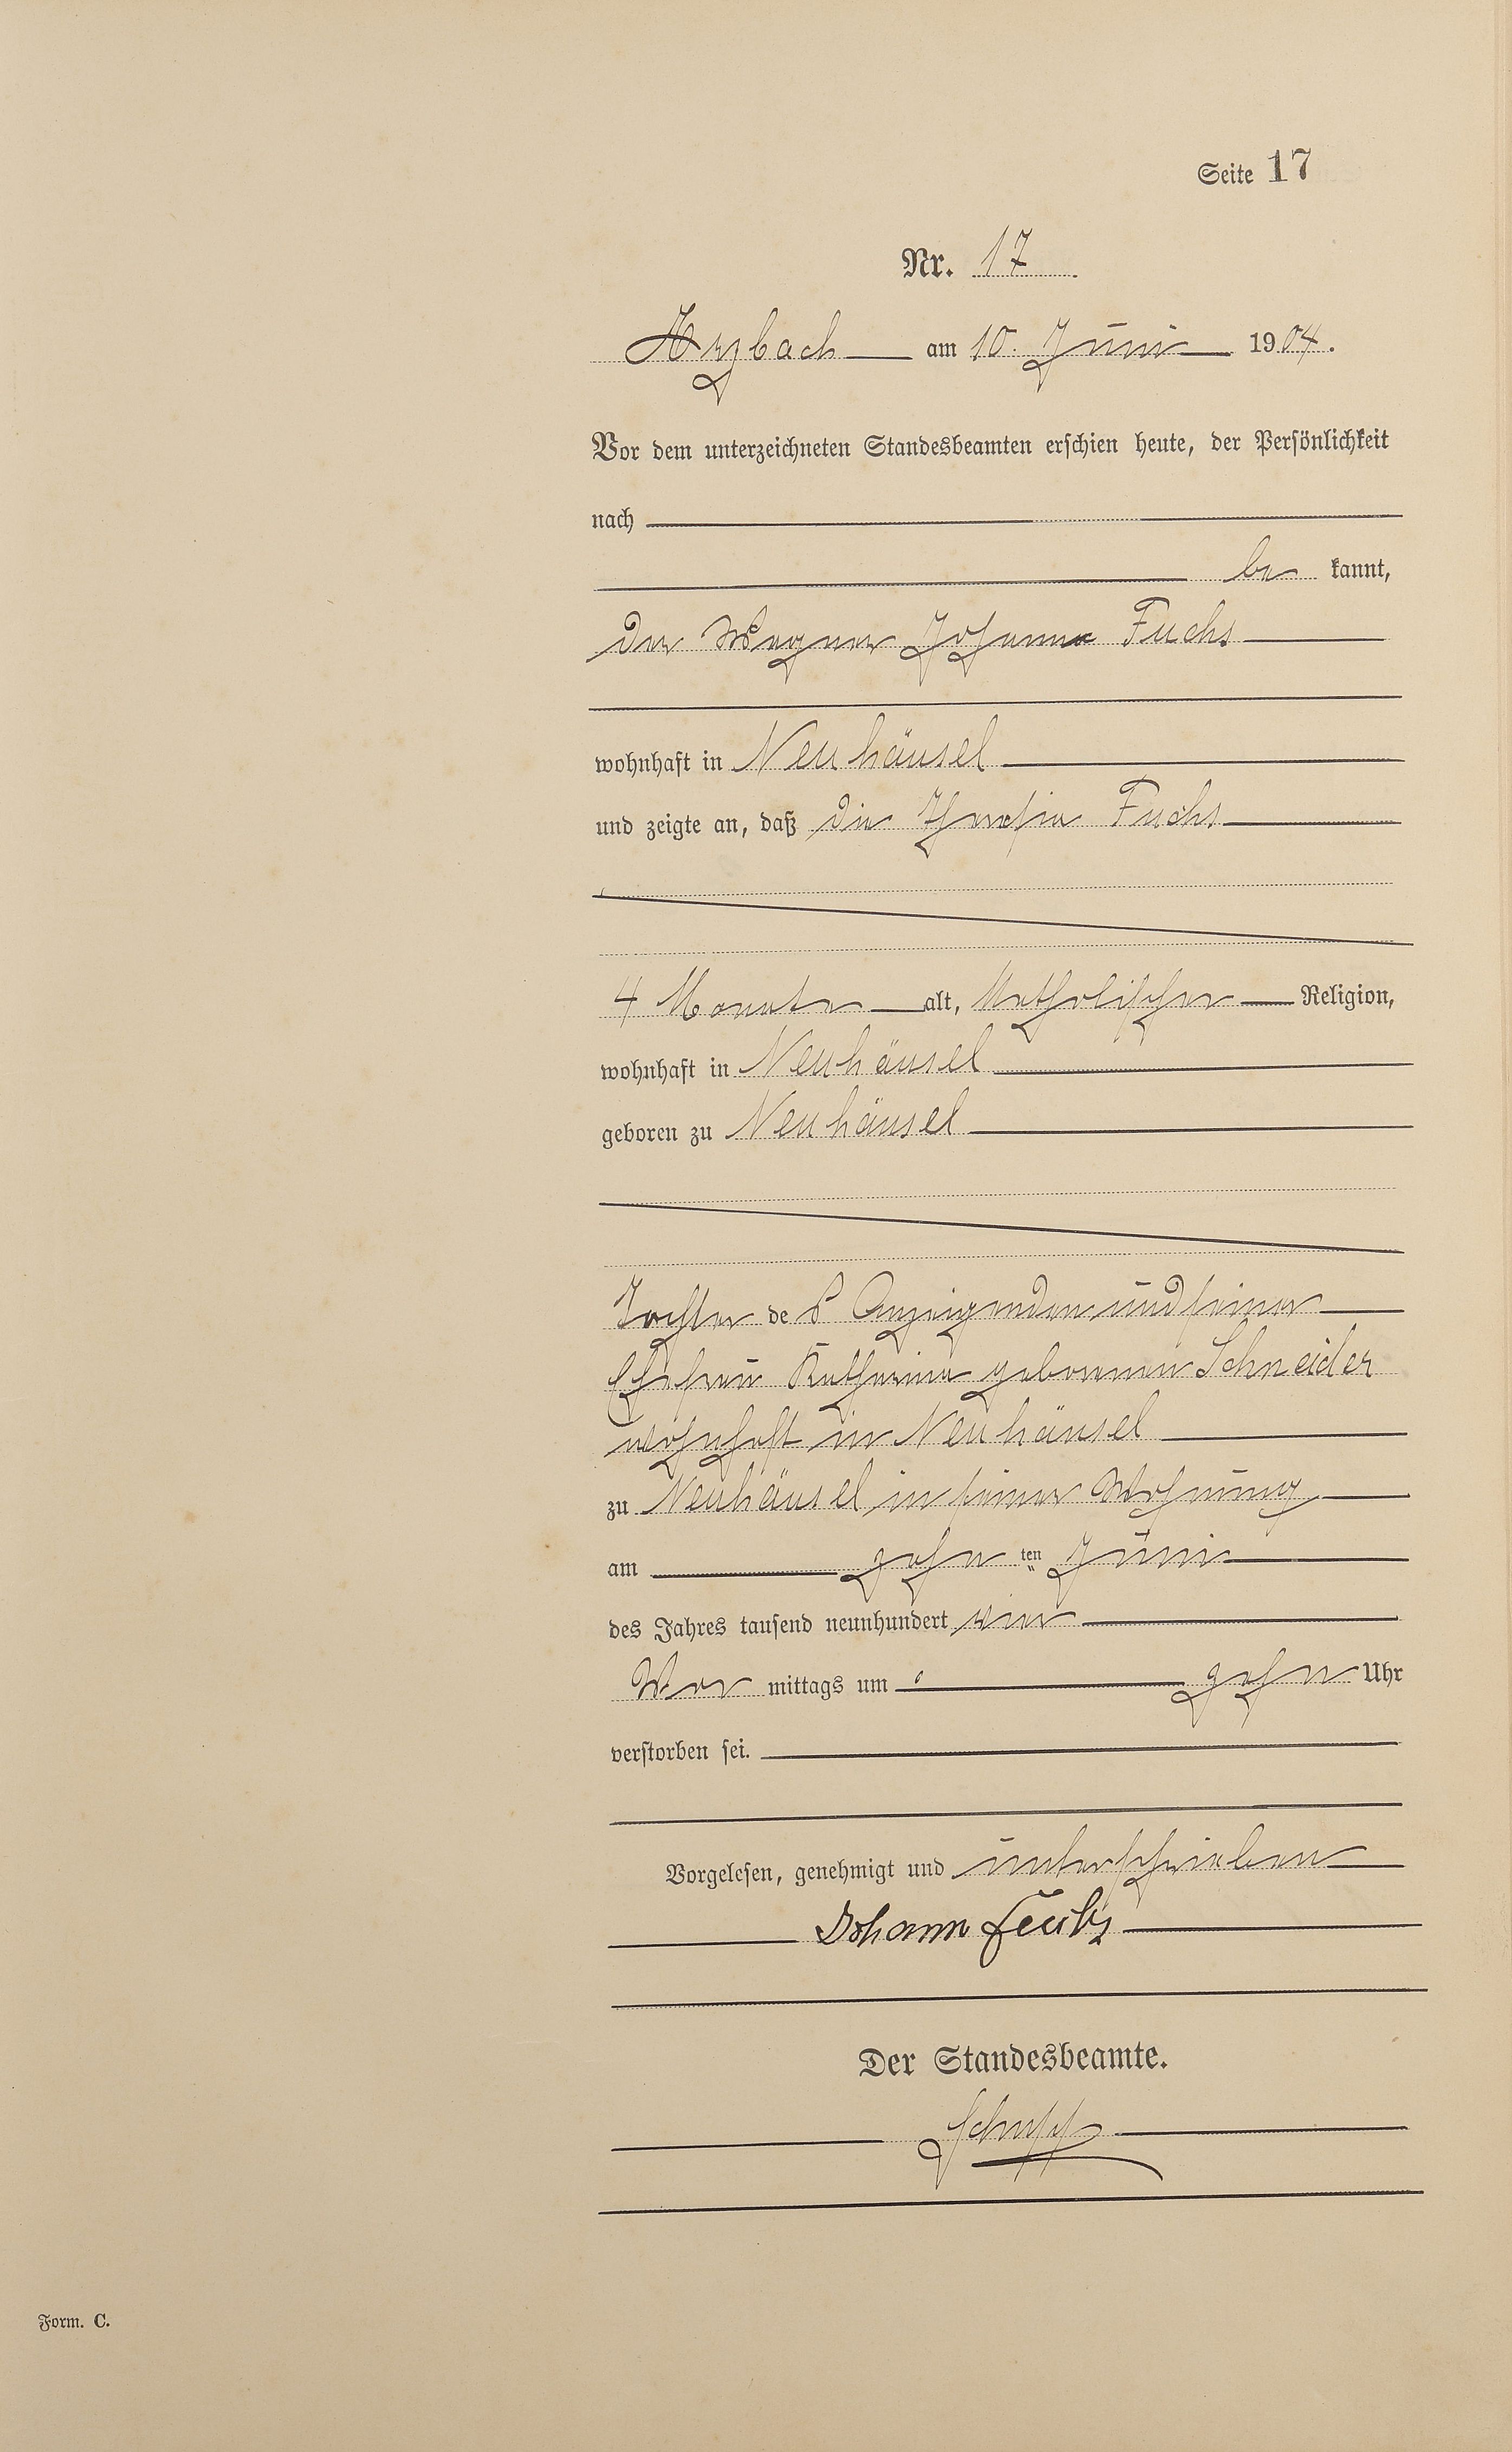 Seite 17
Nr. 17
Arzbach am 10. Juni 1904.
Vor dem unterzeichneten Standesbeamten erschien heute, der Persönlichkeit
nach
be kannt,
der Wagner Johann Fuchs
wohnhaft in Neuhäusel
und zeigte an, daß die Theresia Fuchs
4 Monate alt, katholischer Religion,
wohnhaft in Neuhäusel
geboren zu Neuhäusel
Tochter des Anzeigenden und seiner
Ehefrau Katharina geborenen Schneider
wohnhaft in Neuhäusel
zu Neuhäusel in seiner Wohnung
am zehn ten Juni
des Jahres tausend neunhundert vier
Vor mittags um zehn Uhr
verstorben sei.
Vorgelesen, genehmigt und unterschrieben
Johann Fuchs
Der Standesbeamte.
Schupp
Form. C.